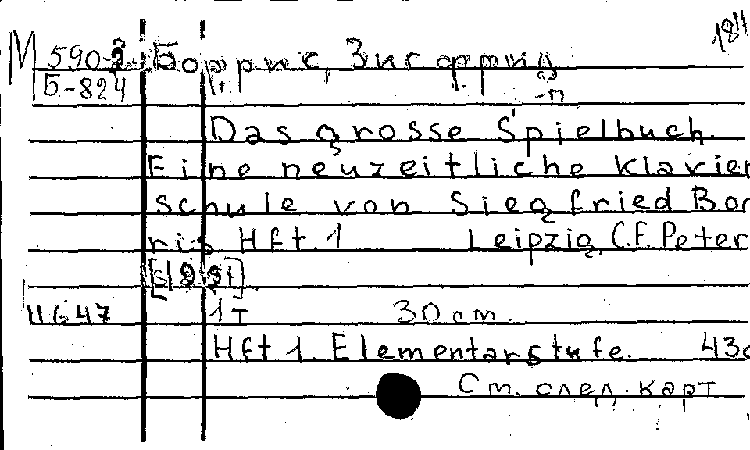 184
М 590-2 Боррис, Зигфрид
Б-824
-п
Das grosse Spielbuch.
Eine neuzeitliche Klavier
schule von Siegfried Bor
ris Hft. 1 Leipzig, C.F. Peter
11647 1 т 30 cm.
Hft 1. Elementarstufe. 43c
См. след. карт